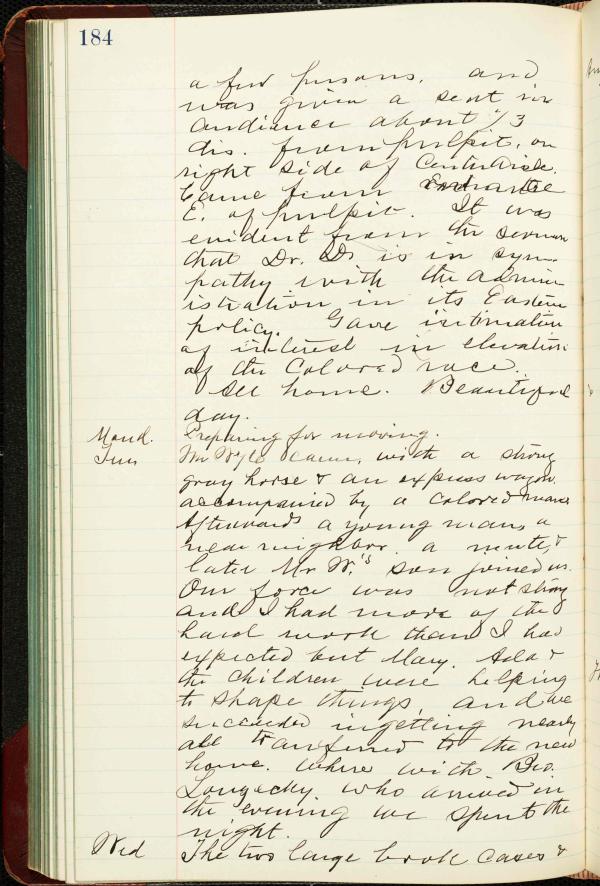 184
a few persons, and
was given a seat in
audience about 1/3
dis. from pulpit, on
right side of Centre Aisle.
Came from
E. of pulpit. It was
evident from the sermon
that Dr. D. is in sym-
pathy with the admin-
istration in its Eastern
policy. Gave intimation
of interest in elevation
of the Colored race.
All home. Beautiful
day.
Mond. Preparing for moving.
Tues Mr came, with a strong
gray horse & an express wagon,
accompanied by a colored man
Afterwards a young man, a
near neighbor, a mute, &
later Mr W.'s son joined us.
Our force was not strong
and I had more of the
hard work than I had
expected but Mary. Ada &
the children were helping
to shape things, and we
succeeded in getting nearly
all transferred to the new
home. where with Bro.
Longacky who arrived in
the evening we spent the
night.
Wed The two large book cases &